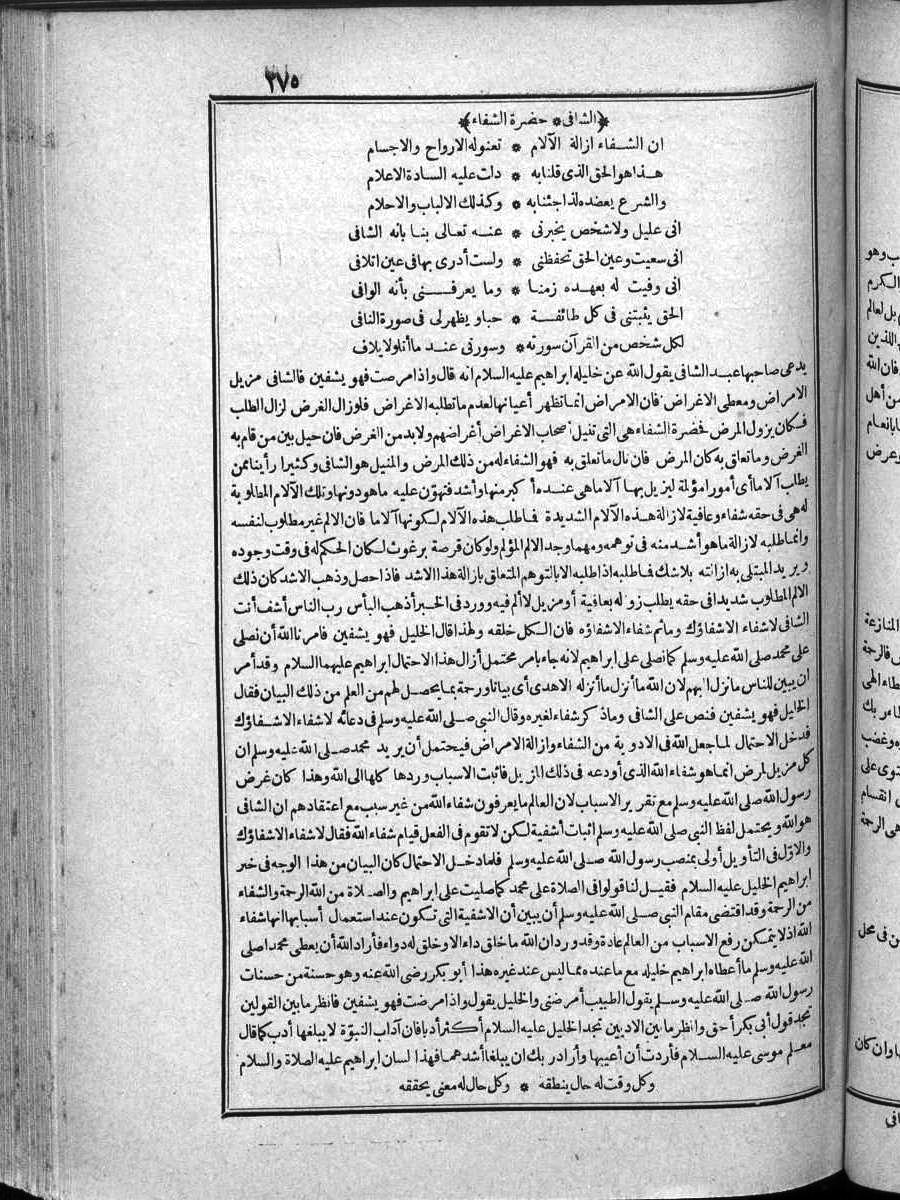 ٣٧٥
﴿الشافى * حضرة الشفاء﴾
ان الشفاء ازالة الآلام * تعنوله الارواح والاجسام
هذا هو الحق الذى قلنابه * دلت عليه السادة الاعلام
والشرع يعضده لذا جئنابه * وكذلك الالباب والاحلام
انى عليل ولاشخص يخبرنى * عنه تعالى بنا بانه الشافى
انى سعيت وعين الحق تحفظنى * ولست أدرى بهافى عين اتلافى
انى وفيت له بعهده زمنا * وما يعرفنى بأنه الوافى
الحق يثبتنى فى كل طائفة * حباو يظهرلى فى صورة النافى
لكل شخص من القرآن سورته * وسورتى عند ماأتلولايلاف
يدعى صاحبهاعبد الشافى يقول الله عن خليله ابراهيم عليه السلام انه قال واذامرضت فهو يشفين فالشافى مزيل
الامراض ومعطى الاغراض فان الامراض انماتظهر أعيانهالعدم ماتطلبه الاغراض فلوزال الغرض لزال الطلب
فكان يزول المرض فحضرة الشفاءهى التى تنيل أصحاب الاغراض أغراضهم ولابد من الغرض فان حيل بين من قام به
الغرض وماتعلق به كان المرض فان نال ماتعلق به فهو الشفاءله من ذلك المرض والمنيل هو الشافى وكثيرا رأيناممن
يطلب آلاماأى أمورامؤلمة ليزيل بها آلاماهى عنده أكبرمنهاوأشدفتهون عليه ماهودونهاوتلك الآلام المطلوبة
له هى فى حقه شفاء وعافية لازالة هذه الآلام الشديدة فاطلب هذه الآلام لكونهاآلاما فان الالم غير مطلوب لنفسه
وانماطلبه لازالة ماهوأشدمنه فى توهمه ومهماوجد الالم المؤلم ولوكان قرصة برغوث لكان الحكم له فى وقت وجوده
ويريد المبتلى به ازالته بلاشك فماطلبه اذاطلبه الابالتوهم المتعلق بازالة هذا الاشد فاذاحصل وذهب الاشدكان ذلك
الالم المطلوب شديدافى حقه يطلب زواله بعافية أومزيل لاألم فيه وورد فى الخبر أذهب البأس رب الناس أشف أنت
الشافى لاشفاء الاشفاؤك وماثم شفاء الاشفاؤه فان الكل خلقه ولهذا قال الخليل فهو يشفين فامرنا الله أن نصلى
على محمد صلى الله عليه وسلم كماصلى على ابراهيم لانه جاء بامر محتمل أزال هذا الاحتمال ابراهيم عليهما السلام وقد أمر
أن يبين للناس مانزل اليهم لان الله ماأنزل ماأنزله الاهدى أى بيانا ورحمة بمايحصل لهم من العلم من ذلك البيان فقال
الخليل فهو يشفين فنص على الشافى وماذكرشفاءلغيره وقال النبى صلى الله عليه وسلم فى دعائه لاشفاء الاشفاؤك
فدخل الاحتمال لماجعل الله فى الادوية من الشفاء وازالة الامراض فيحتمل أن يريد محمد صلى الله عليه وسلم ان
كل مزيل لمرض انماهوشفاء الله الذى أودعه فى ذلك المزيل فاثبت الاسباب وردها كلهاالى الله وهذا كان غرض
رسول الله صلى الله عليه وسلم مع تقرير الاسباب لان العالم مايعرفون شفاء الله من غير سبب مع اعتقادهم ان الشافى
هو الله ويحتمل لفظ النبى صلى الله عليه وسلم اثبات أشفية لكن لاتقوم فى الفعل قيام شفاء الله فقال لاشفاء الاشفاؤك
والاول فى التأويل أولى بمنصب رسول الله صلى الله عليه وسلم فلمادخل الاحتمال كان البيان من هذا الوجه فى خبر
ابراهيم الخليل عليه السلام فقيل لنا قولوا فى الصلاة على محمد كماصليت على ابراهيم والصلاة من الله الرحمة والشفاء
من الرحمة وقد اقتضى مقام النبى صلى الله عليه وسلم أن يبين أن الاشفية التى تكون عند استعمال أسبابهاانهاشفاء
الله اذلايتمكن رفع الاسباب من العالم عادة وقد ورد ان الله ماخلق داء الاوخلق له دواء فأراد الله أن يعطى محمد اصلى
الله عليه وسلم ماأعطاه ابراهيم خليله مع ماعنده مماليس عند غيره هذا أبو بكر رضى الله عنه وهو حسنة من حسنات
رسول الله صلى الله عليه وسلم يقول الطبيب أمرضنى والخليل يقول واذامرضت فهو يشفين فانظر مابين القولين
تجد قول أبى بكر أحق وانظر مابين الادبين تجد الخليل عليه السلام أكثر أدبا فان آداب النبوة لا يبلغها أدب كماقال
معلم موسى عليه السلام فأردت أن أعيبها وأراد ربك ان يبلغا أشدهما فهذا لسان ابراهيم عليه الصلاة والسلام
وكل وقت له حال ينطقه * وكل حال له معنى يحققه
ب وهو
الكرم
م بل لعالم
واللذين
فان الله
من أهل
المنازعة
س فالرحمة
طاء الهى
وغضب
توى على
انقسام
هى الرحمة
ن فى محل
وان كان